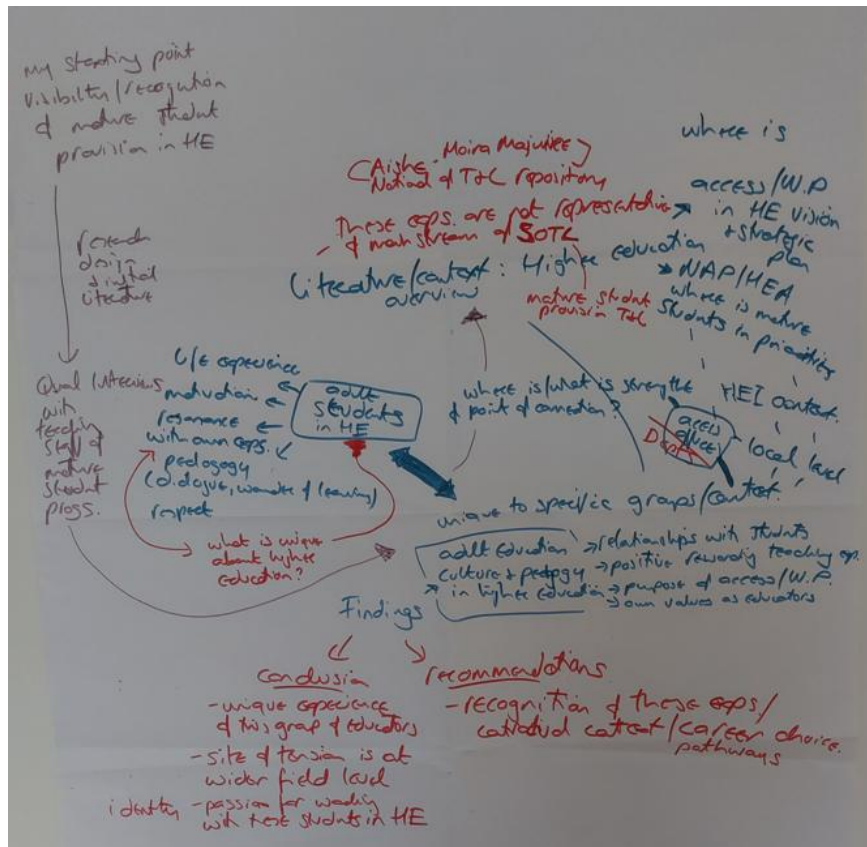 My starting point
visibility/recognition
of mature student
provision in HE
research
design
& initial
literature
Qual interviews
with
teaching
staff of
mature
student
progs.
(Aishe - Moira
National of T&L repository
These exps. are not representative
of mainstream of SOTL
Literature/context: Higher education
overview
mature student
provision T&L
where is
access/W.P
in HE vision
& strategic
plan
NAP/HEA
where is mature
students in priorities
HEI context.
local level
access
office
Dept
L/E experience
motivation
resonance
with own exps.
pedagogy
(dialogue, wonder of learning)
respect
adult
students
in HE
where is/what is strength
of point of connection?
what is unique
about higher
education?
unique to specific groups/context.
adult education
culture & pedagogy
in higher education
relationships with students
positive rewarding teaching exp.
purpose of access/W.P.
own values as educators
Findings
conclusion
- unique experience
of this group of educators
- site of tension is at
wider field level
identity - passion for working
with these students in HE
recommendations
- recognition of these exps/
context/career choice.
pathways